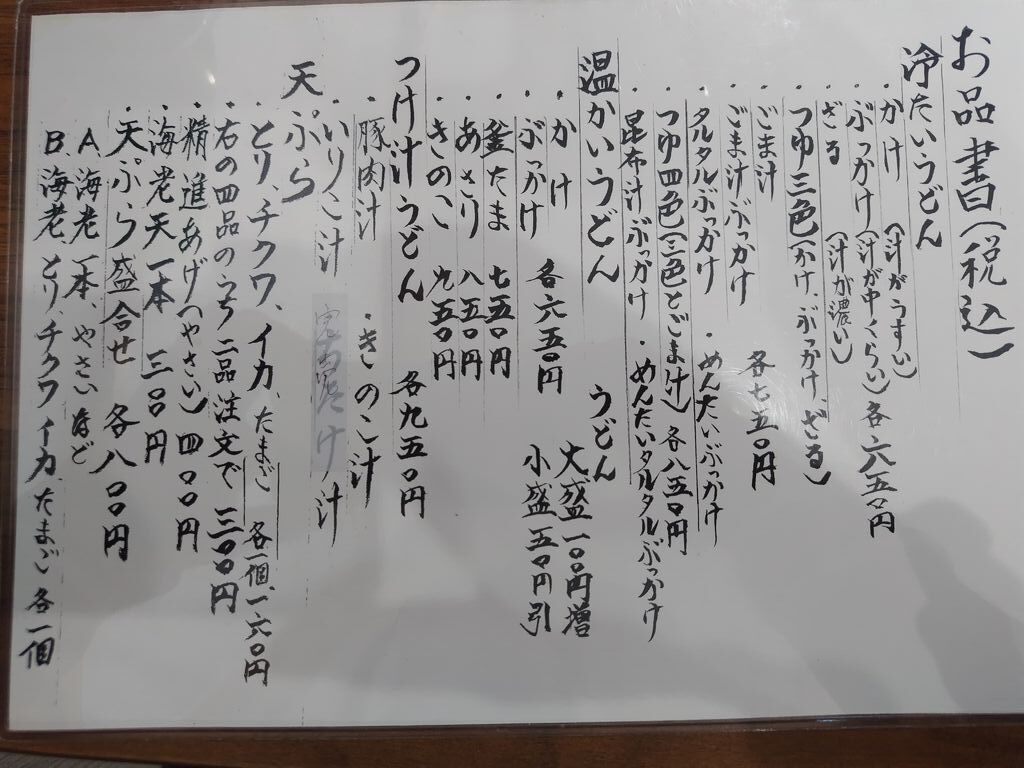 お品書(税込)
冷たいうどん
・かけ(汁がうすい)
・ぶっかけ(汁が中くらい)各六五〇円
・ざる(汁が濃い)
・つゆ三色(かけ、ぶっかけ、ざる)
・ごま汁
・ごま汁ぶっかけ 各七五〇円
・タルタルぶっかけ ・めんたいぶっかけ
・つゆ四色(三色とごま汁)各八五〇円
・昆布汁ぶっかけ ・めんたいタルタルぶっかけ
温かいうどん うどん
大盛一〇〇円増
小盛五〇円引
・かけ
・ぶっかけ 各六五〇円
・釜たま 七五〇円
・あさり 八五〇円
・きのこ 九五〇円
つけ汁うどん 各九五〇円
・豚肉汁 ・きのこ汁
・いりこ汁 汁
天ぷら
・とり、チクワ、イカ、たまご 各一個、一六〇円
・右の四品のうち二品注文で 三〇〇円
・精進あげ(やさい)四〇〇円
・海老天一本 三〇〇円
・天ぷら盛合せ 各八〇〇円
A 海老一本、やさいなど
B 海老、とり、チクワ、イカ、たまご 各一個